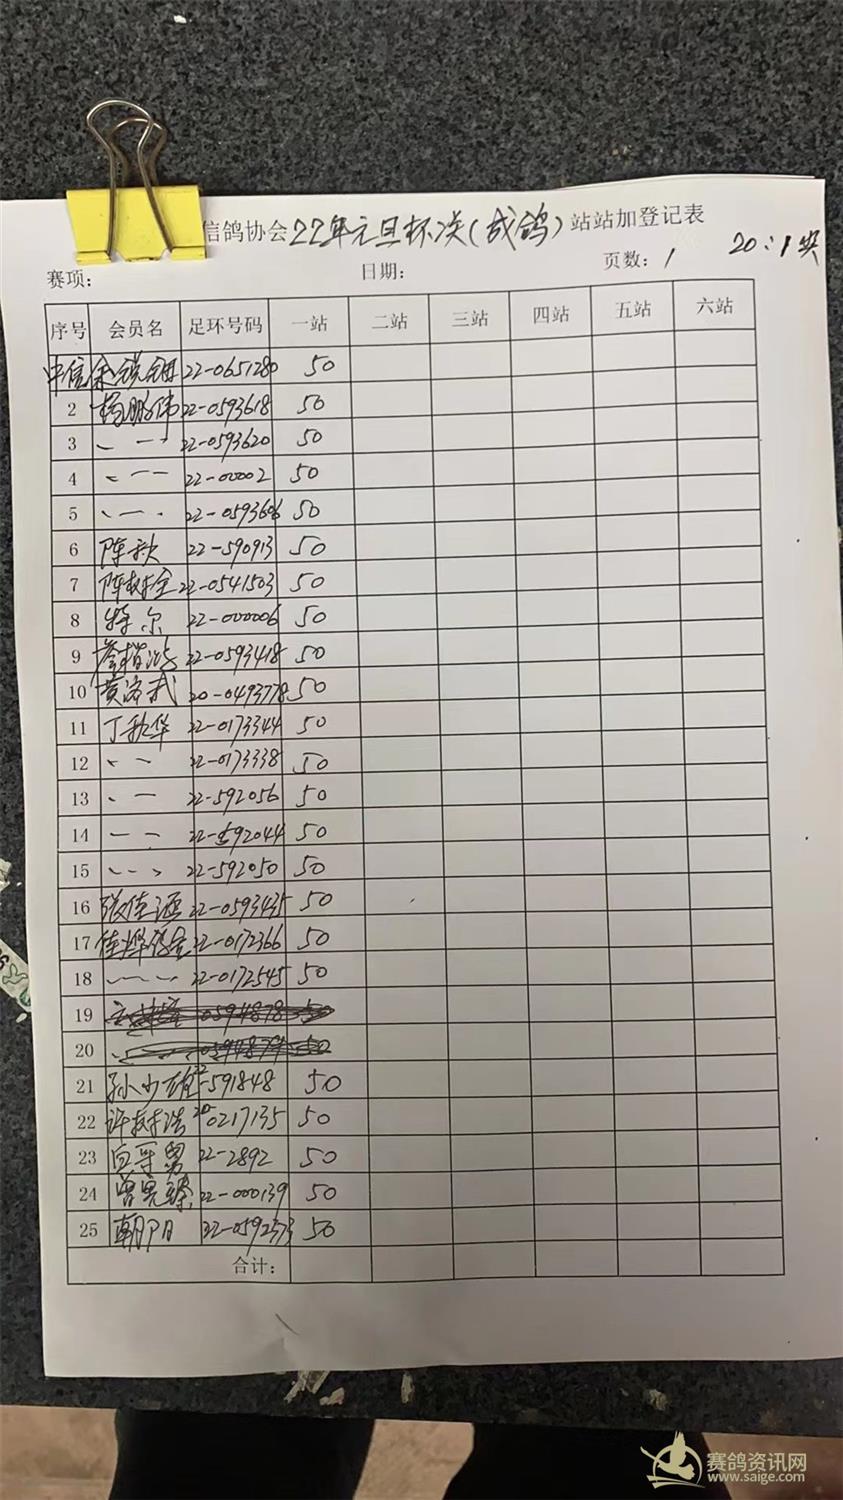 信鸽协会22年元旦杯决(成鸽)站站加登记表
赛项: 日期: 页数: 1 20:1奖
序号 会员名 足环号码 一站 二站 三站 四站 五站 六站
中信 22-0651280 50
2 杨鹏伟 22-0593618 50
3 22-0593620 50
4 22-00002 50
5 22-0593606 50
6 陈秋 22-590913 50
7 陈树全 22-0541503 50
8 特尔 22-000006 50
9 22-0593418 50
10 20-0493778 50
11 丁秋华 22-0173344 50
12 22-0173338 50
13 22-592056 50
14 22-592044 50
15 22-592050 50
16 张佳涵 22-0593435 50
17 22-0172366 50
18 22-0172545 50
19 0594878 50
20 0594879 50
21 孙少雄 22-591848 50
22 许树浩 20-0217135 50
23 22-2892 50
24 22-000139 50
25 朝阳 22-0592373 50
合计:
赛鸽资讯网
www.saige.com